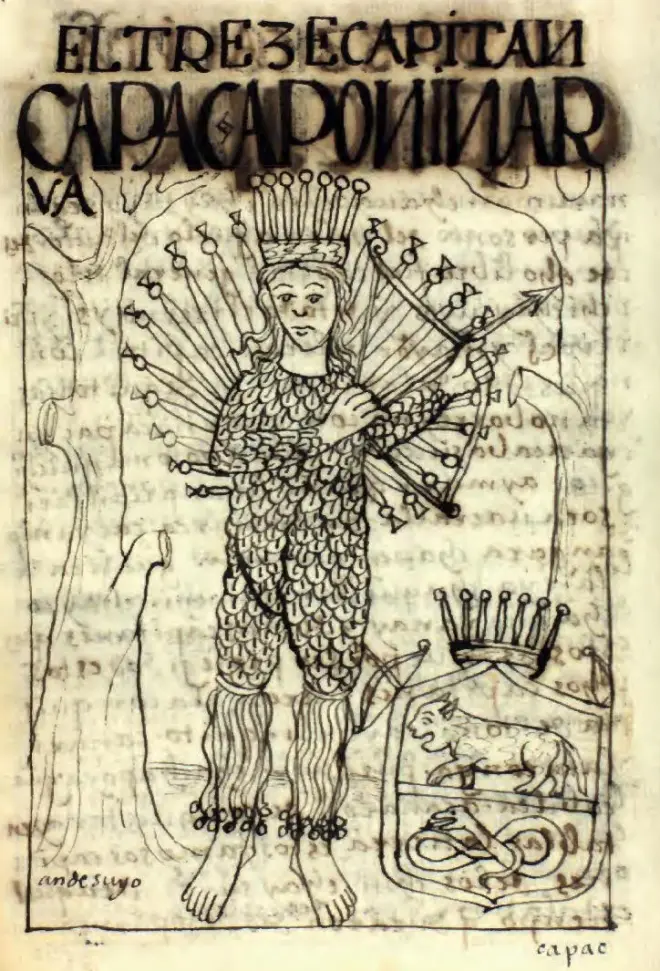 EL TREZE CAPITAN
CAPAC APO NINAR
VA
andesuyo
capac